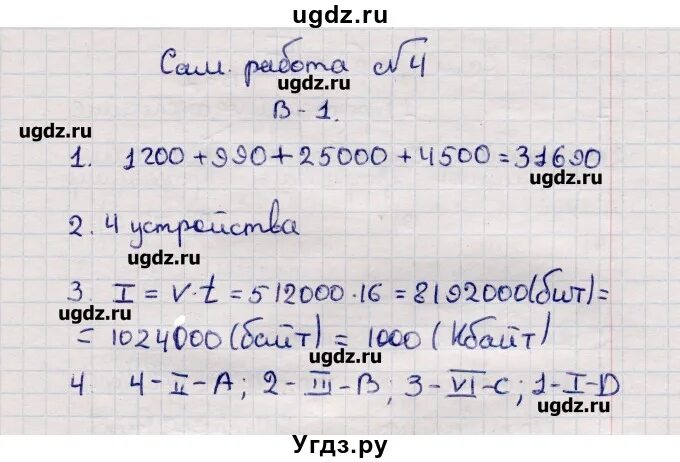 ugdz.ru
Сам. работа №4
ugdz.ru
В-1.
ugdz.ru
1. 1200 + 990 + 25000 + 4500 = 31690
ugdz.ru
2. 4 устройства
ugdz.ru
3 I = V·t = 512000·16 = 8192000(бит) =
ugdz.ru
= 1024000(байт) = 1000 (Кбайт)
ugdz.ru
4. 4-II-A; 2-III-B; 3-VI-C; 1-I-D
ugdz.ru
Угдз.ру